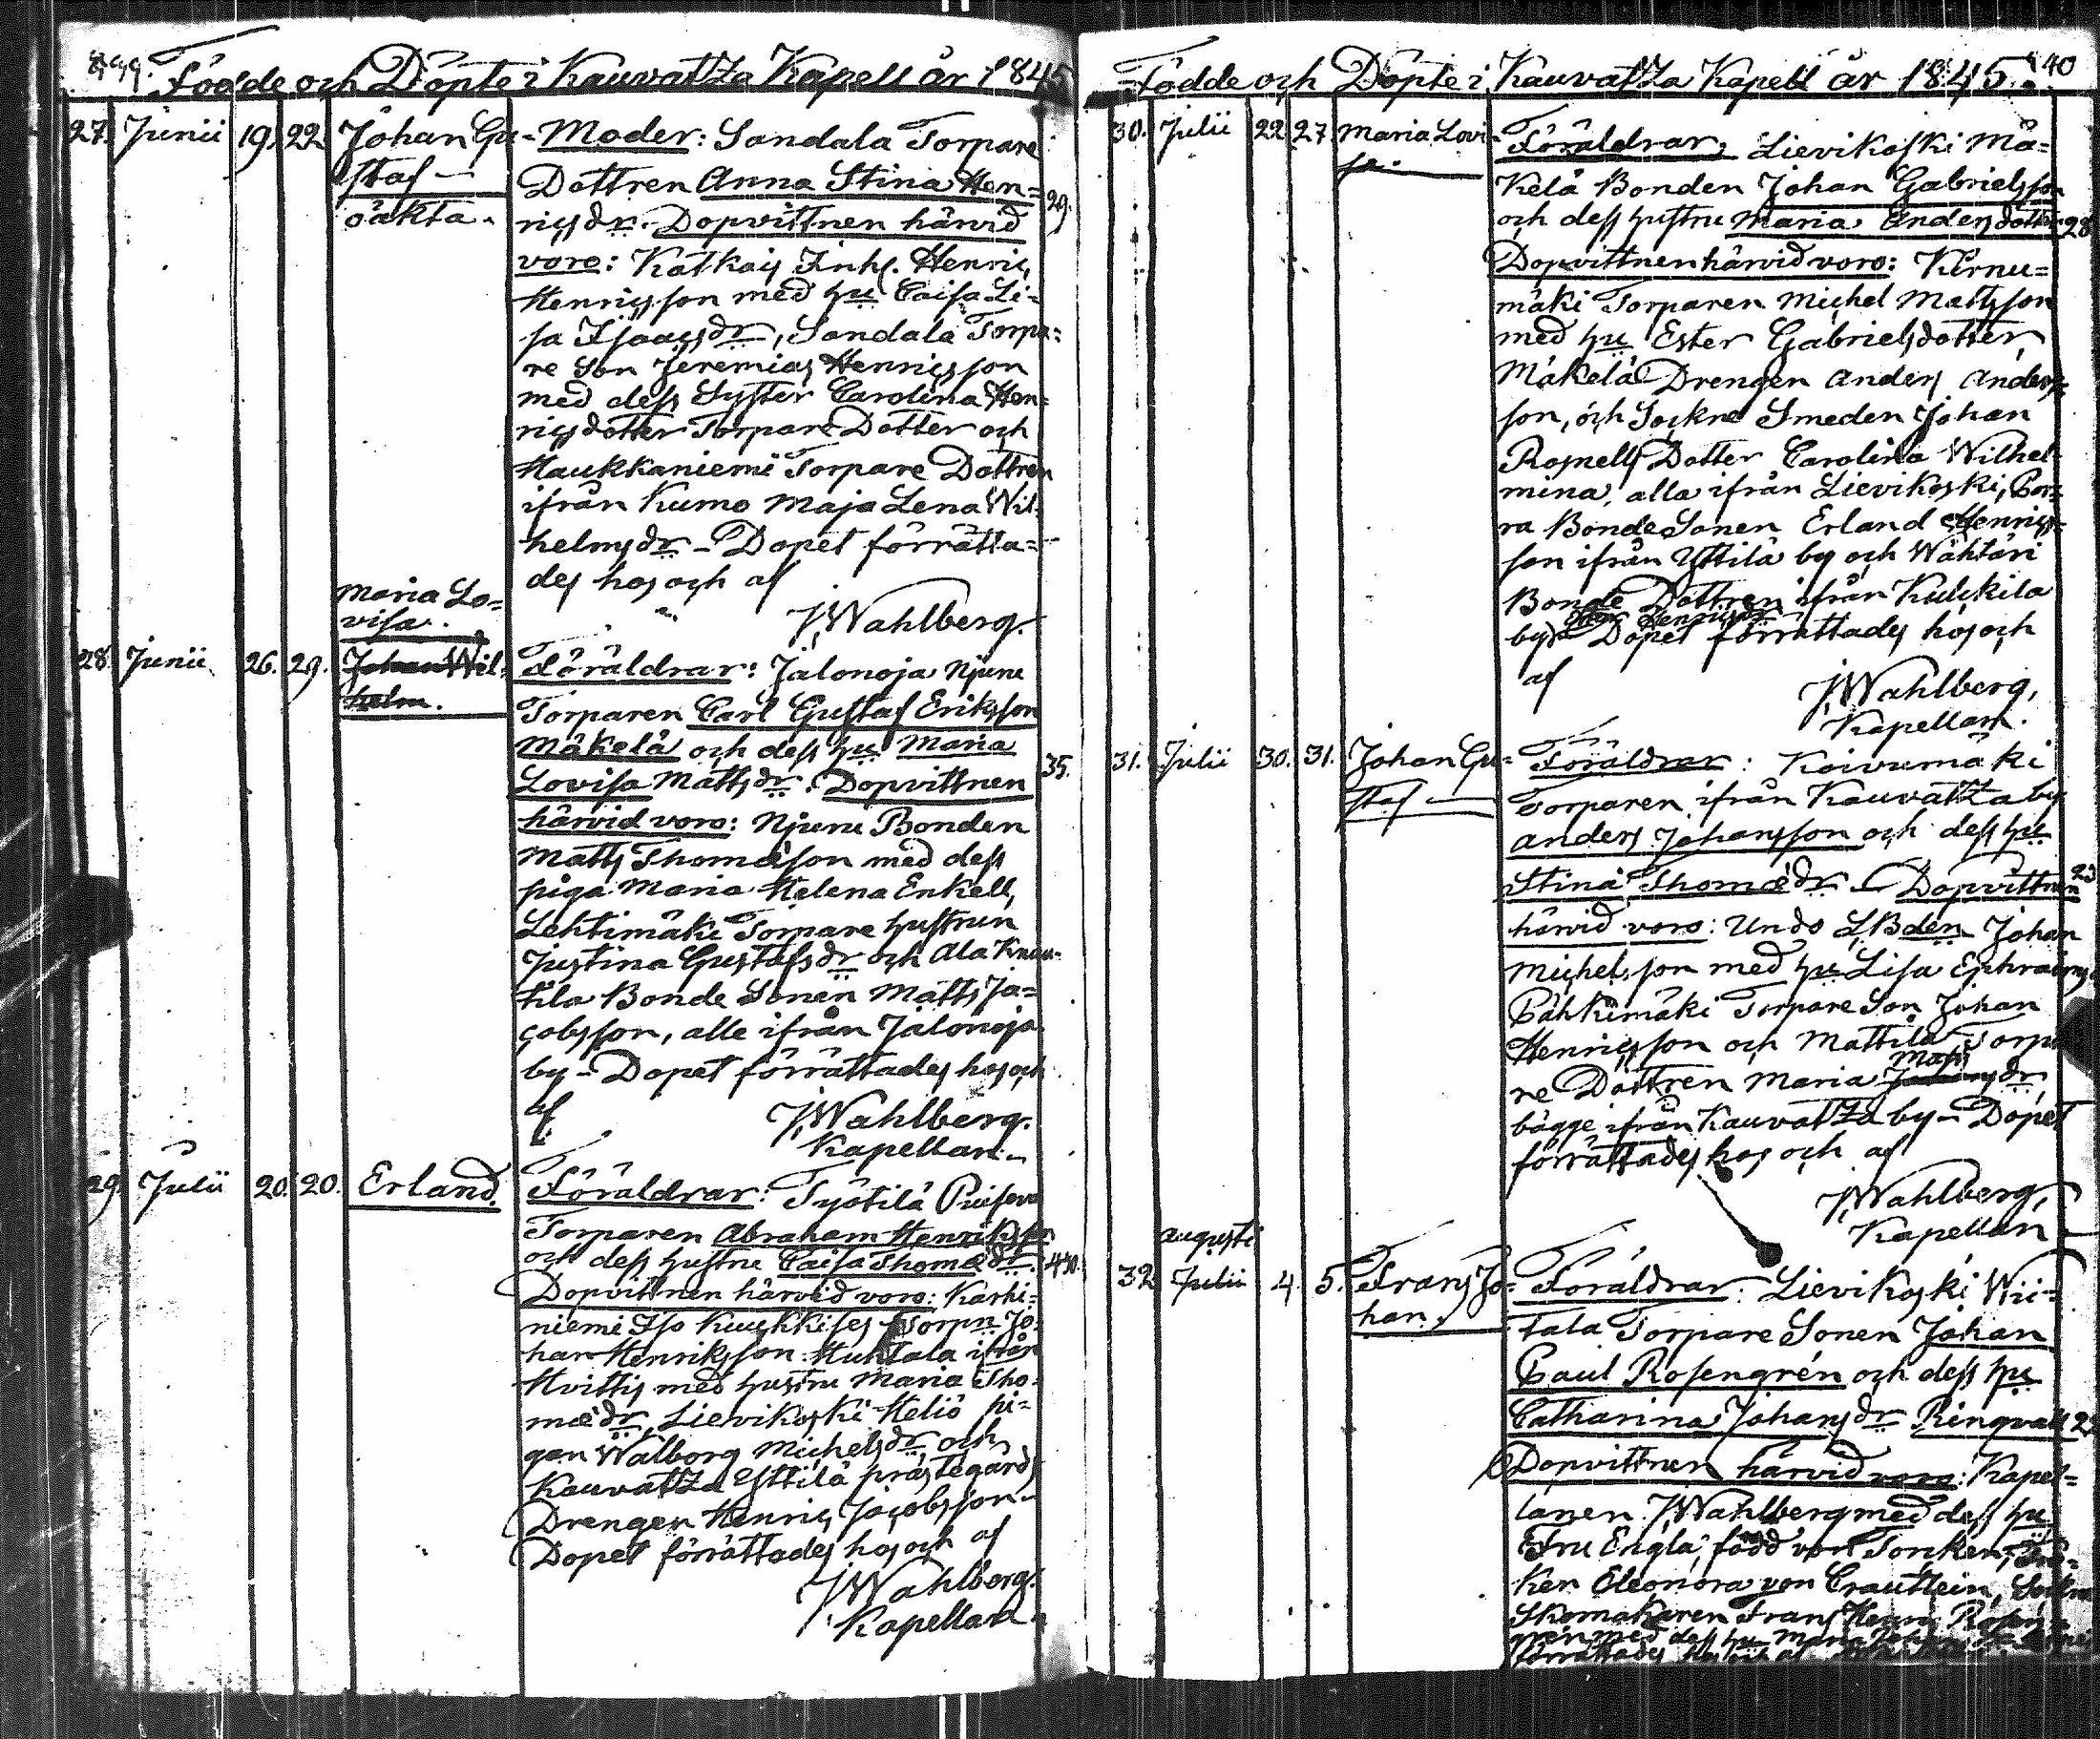 Födde och Döpte i Kauvatza Kapell år 1845
27. Junii 19. 22. Johan Gu-
staf —
oäkta.
Moder: Sandala Torpare
Dottren Anna Stina Hen=
ricsdr. Dopvittnen härvid 29.
voro: Katkais Inhs. Henric
Henricsson med hu Caisa Li-
sa Isaacsdr, Sandala Torpa=
re Son Jeremias Henricsson
med dess Syster Carolina Hen=
ricsdotter Torpare Dotter och
Haukkaniemi Torpare Dottren
ifrån Kumo Maja Lena Wil-
helmsdr - Dopet förrätta=
des hos och af
JWahlberg.
Maria Lo=
visa.
28. Junii 26. 29. Johan Wil-
helm.
Föräldrar: Jalonoja Njuni
Torparen Carl Gustaf Eriksson
Mäkelä och dess hu Maria
Lovisa Mattsdr. Dopvittnen 35.
härvid voro: Njuni Bonden
Matts Thomæson med dess
piga Maria Helena Enkell,
Lehtimäki Torpare hustrun
Justina Gustafsdr och Ala
tila Bonde Sonen Matts Ja=
cobsson, alle ifrån Jalonoja
by - Dopet förrättades hos och
af JWahlberg.
Kapellan.
29. Julii 20. 20. Erland.
Föräldrar: Työtilä
Torparen Abraham Henriksson
och dess hustru Caisa Thomædr. 40.
Dopvittnen härvid voro: Karhi=
niemi Iso Kuukkises Torpn Jo-
han Henriksson Huhtala ifrån
Hvittis med hustru Maria Tho-
mædr, Lievikoski Heliö pi=
gan Walborg Michelsdr och
Kauvatza Yttilä prästegårds
Drengen Henric Jacobsson -
Dopet förrättades hos och af
JWahlberg.
Kapellan.
Födde och Döpte i Kauvatza Kapell år 1845. 40
30. Julii 22. 27. Maria Lovi-
sa.
Föräldrar, Lievikoski Mä=
kelä Bonden Johan Gabrielsson
och dess hustru Maria Andersdotter 28
Dopvittnen härvid voro: Kirnu=
mäki Torparen Michel Mattsson
med hu Ester Gabrielsdotter,
Mäkelä Drengen Anders Anders-
son, och Sockne Smeden Johan
Rosnells Dotter Carolina Wilhel-
mina, alla ifrån Lievikoski,
ra Bonde Sonen Erland Henrics=
son ifrån Yttilä by och Wähtäri
Bonde Dottren ifrån Kulkkila
Henricsdr
by - Dopet förrättades hos och
af JWahlberg,
Kapellan.
31. Julii 30. 31. Johan Gu=
staf —
Föräldrar: Koivumäki
Torparen ifrån Kauvatza by
Anders Johansson och dess hu
Stina Thomædr - Dopvittnen
härvid voro: Undo LBden Johan
Michelsson med hu Lisa Ephraims
Pähkimäki Torpare Son Johan
Henricsson och Mattila Torpa
Matts
re Dottren Maria dr,
bägge ifrån Kauvatza by - Dopet
förrättades hos och af
JWahlberg,
Kapellan
Augusti
32 Julii 4. 5. Frans Jo=
han.
Föräldrar: Lievikoski Wii=
tala Torpare Sonen Johan
Paul Rosengrén och dess hu
Catharina Johansdr Ringvall
Dopvittnen härvid voro: Kapel=
lanen JWahlberg med dess hu
Fru Engla, född von Torcken, Frö-
ken Eleonora von Crautlein, Sockne
Skomakaren Frans Henric Rosen=
grén med dess hu Maria
förrättades